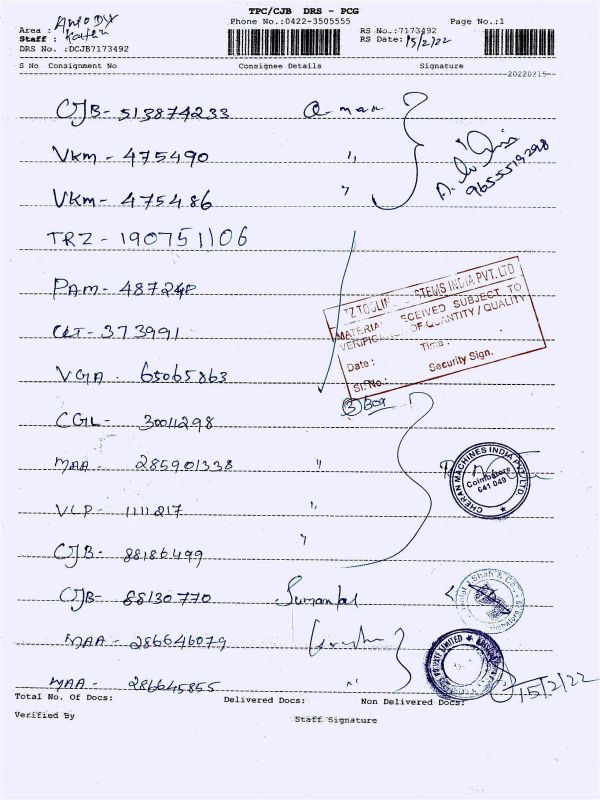 TPC/CJB DRS - PCG
Phone No.:0422-3505555 Page No.:1
Area :
Staff :
DRS No. :DCJB7173492
RS No.:7173492
RS Date: 15/2/22
S No Consignment No Consignee Details Signature
20220215
CJB- 513874233
VKM- 475490 "
VKM- 475486 "
9655519298
TRZ- 190751106
PAM- 48724P
373991
VGA- 65065863
TZ TOOLING SYSTEMS INDIA PVT. LTD
MATERIAL RECEIVED SUBJECT TO
VERIFICATION OF QUANTITY / QUALITY
Date : Time :
Sl. No.: Security Sign.
③ Box
CGL- 30011298
MAA- 285901338 "
CHERAN MACHINES INDIA PVT. LTD.
Coimbatore
641 049
VLP- 1111217 "
CJB- 88186499 "
CJB- 88130770
Shah & Co
MAA- 286646079
PRIVATE LIMITED
MAA- 286645855 "
15/2/22
Total No. Of Docs: Delivered Docs: Non Delivered Docs:
Verified By Staff Signature